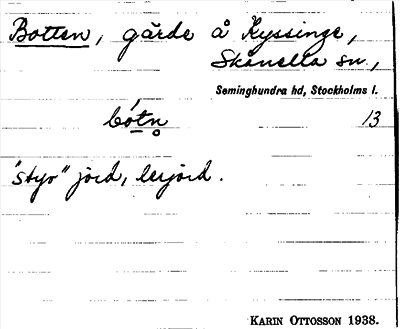 Botten, gärde å Kyssinge,
Skånella sn.,
Seminghundra hd, Stockholms l.
bótn̥ 13
"styv" jord, lerjord.
KARIN OTTOSSON 1938.